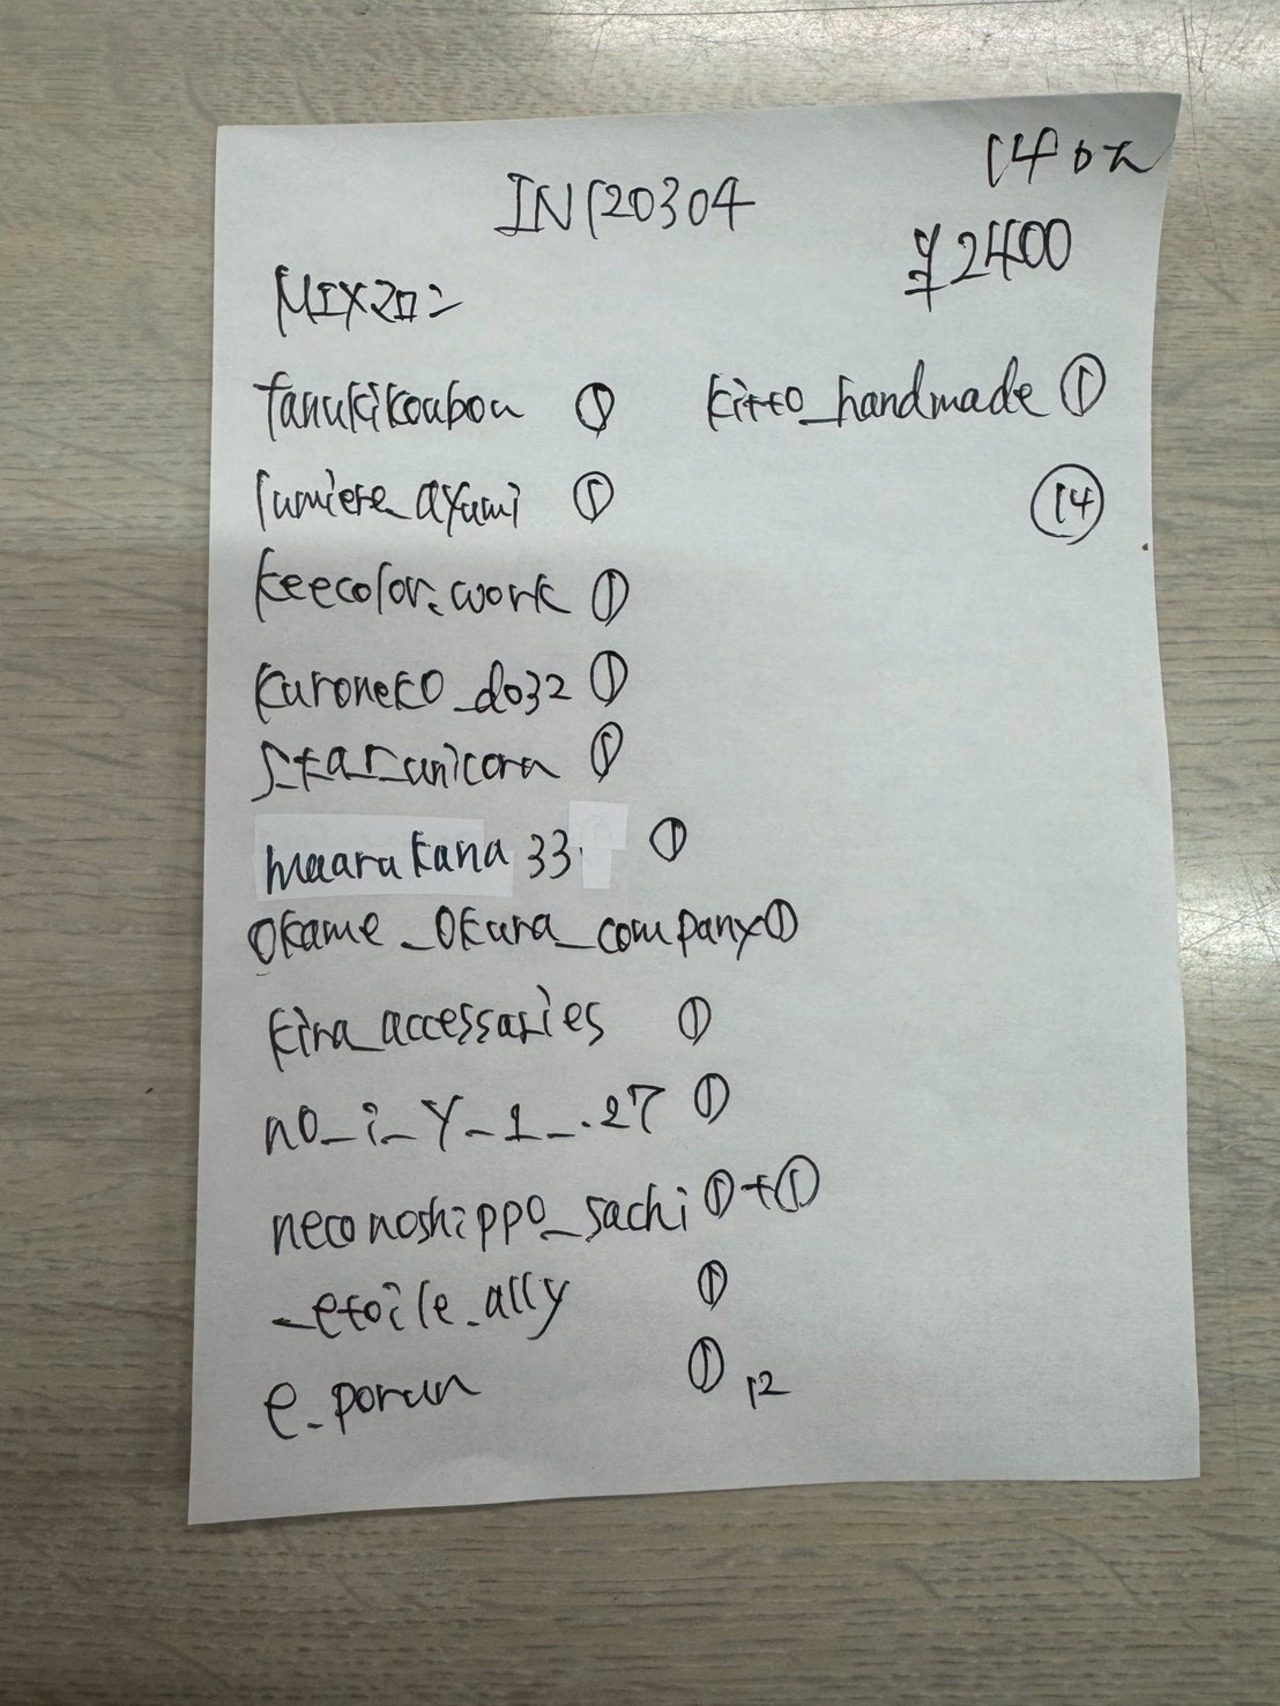 140ん
IN120304
¥2400
MIX20コ
tanukikoubou ①
kitto_handmade ①
lumiere_ayumi ①
⑭
keecolor.work ①
kuroneko_do32 ①
s_t_a_r_unicorn ①
maarukana33 ①
okame_okura_company ①
kira_accessaries ①
no_i_y_1_.27 ①
neconoshippo_sachi ①+①
_etoile.ally ①
e_porun ① 12